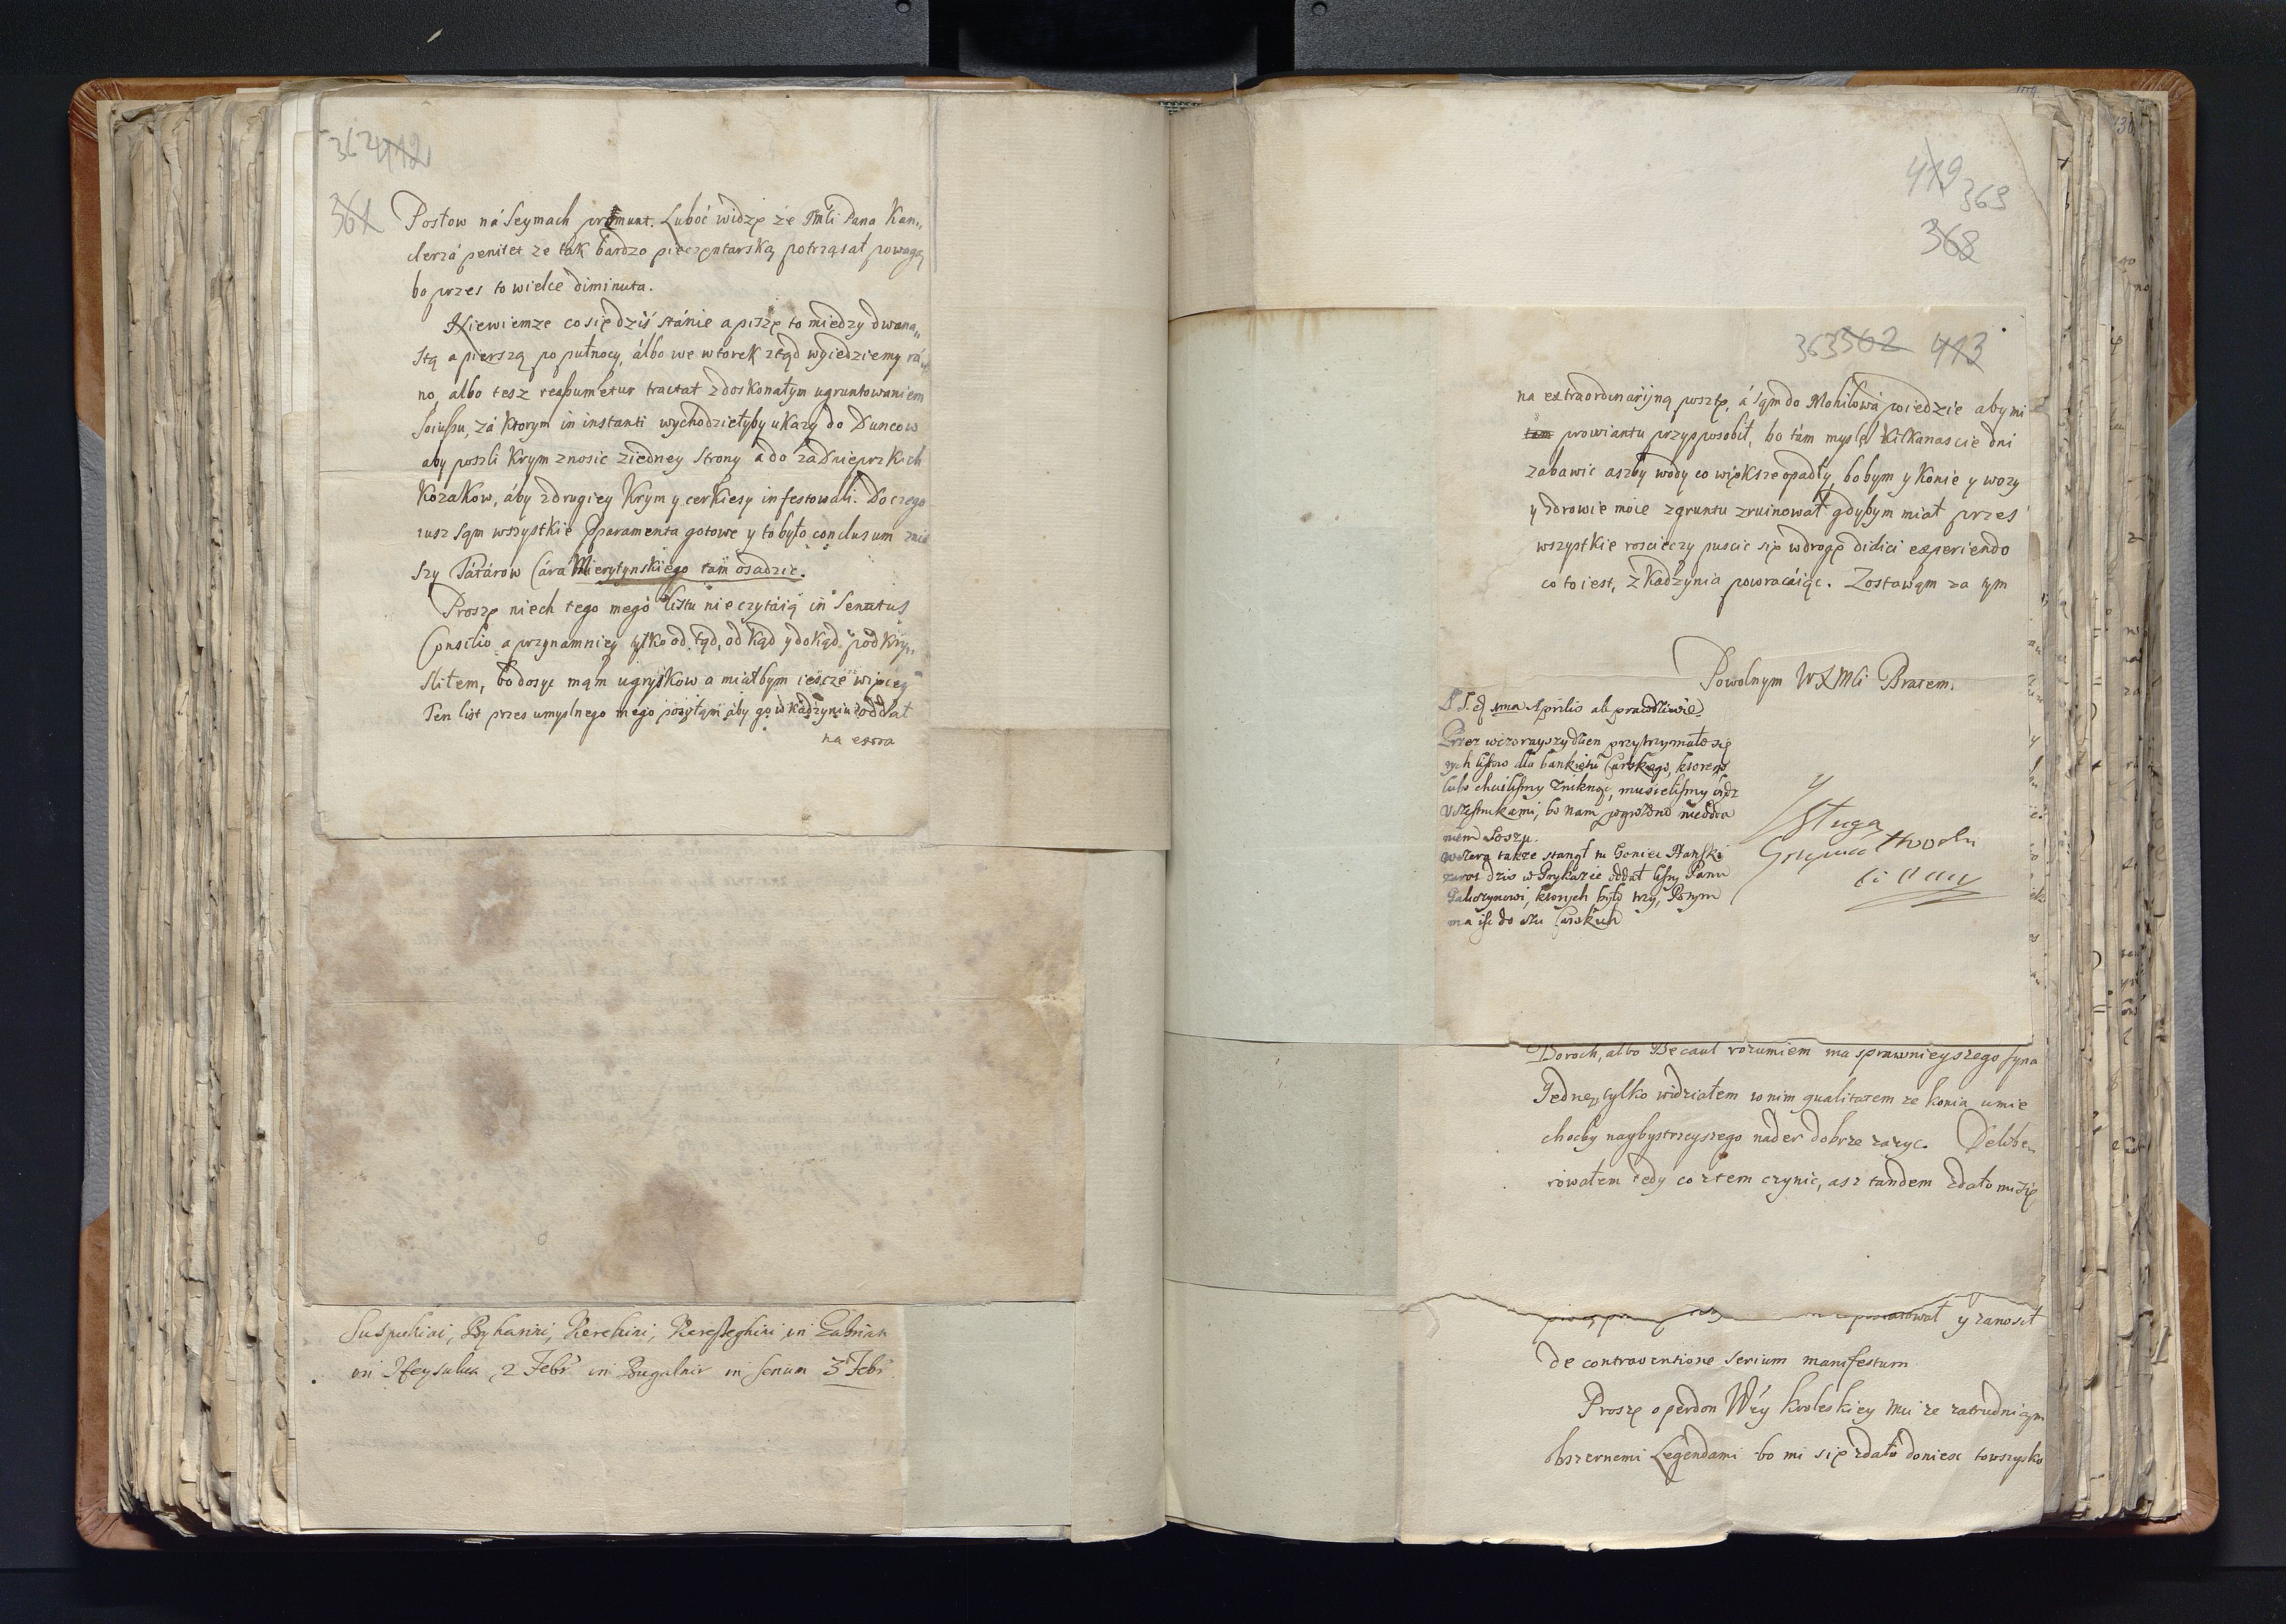 362 412
361
Posłow ná Seymach promunt. Luboć widzę że JMśći Pana Kan„
clerzá penitet ze tak bardzo pieczętarską potrząsał powagą
bo przes to wielce diminuta.
Niewiemze co się dziś stánie a piszę to miedzy dwana„
stą a pierszą po pułnocy, álbo we wtorek ztąd wyiedziemy rá„
no, albo tesz reassumetur tractat z doskonałym ugruntowaniem
sciussu, zá ktorym in instanti wychodziełyby ukazy do Duncow
aby poszli Krym znosic ziedney strony a do zadnieprzkich
Kozakow, áby zdrugiey Krym y cerkiesy infestowali. Do czego
iusz sąm wszystkie apparamenta gotowe y to było conclusum znió
szy Tátárow Cárá Mierytynskiego tam osadzic.
Proszę niech tego mego listu nie czytáią in Senatus
Consilio a przynamniey tylko od tąd, od kąd y dokąd podkry„
sliłem, bo dosyc mąm ugryskow a miałbym iescze więcey
Ten list przes umyslnego mego posyłąm aby go w Kadzyniu oddał
na extra
Suspukiai, Byharini, Kerekini, Keresteghini in Zabrian
in Heysulua 2 Febr in Bugalnir in senium 3 Febr
419 369
368
363 362 413
na extraordinaryiną posztę, á sąm do Mohilowá poiedzie aby mi
prowiantu przysposobił, bo tám myslę kilkanascie dni
zabawic aszby wody co większe opadły, bo bym y konie y wozy
y zdrowie moie zgruntu zruinował gdybym miał przes
wszystkie roscieczy puscic się w drogę didici experiendo
co to iest, z Kadzynia powracáiąc. Zostawąm za tym
Powolnym WXMśći Bratem.
y Sługa
P.S. d ma Aprilis ale prawdziwie
Przez wczorayszy dzien przytrzymało się
tych listow dla bankietu Carskiego, ktorego
lubo chcielismy zniknąc, musielismy bydz
uczestnikami, bo nam pogrożono nieodda
niem
wczora takze stanął tu Goniec Hanski
zaros dzis w Prykazie oddał listy Panu
Galiczynowi, ktorych było trzy, Potym
ma iść do Carskich
Doroch, albo Becaul rozumiem ma sprawnieyszego syna
Jednę tylko widziałem w nim qualitatem ze konia umie
chocby naybystrzeyszego nader dobrze zazyc. Delibe„
rowałem tedy co z tem czynic, asz tandem zdało mi się
y zanosił
de contraventione serium manifestum
Proszę o perdon Wży Kroleskiey Mci ze zatrudniąm
obszernemi Legendami bo mi się zdało doniesc to wszysko